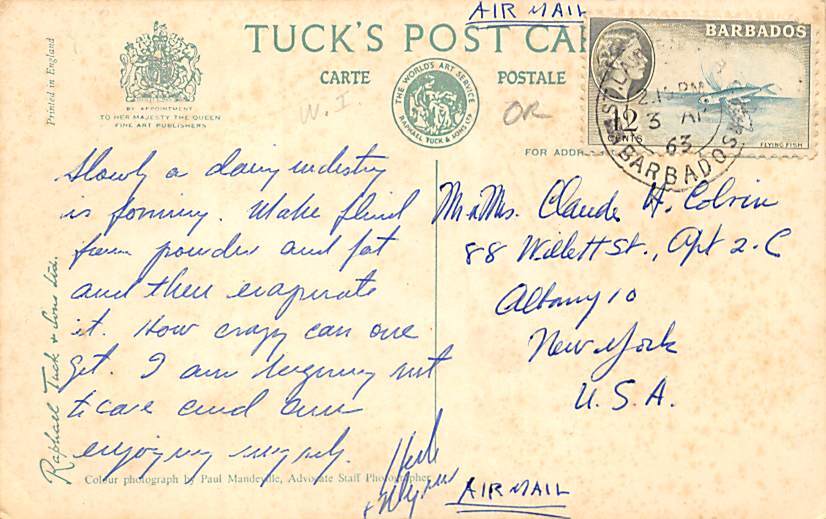 AIR MAIL
TUCK'S POST CAR
CARTE
POSTALE
Printed in England
BY APPOINTMENT
TO HER MAJESTY THE QUEEN
FINE ART PUBLISHERS
THE WORLD'S ART SERVICE
RAPHAEL TUCK & SONS LTD
W. I.
OR
FOR ADDR
BARBADOS
12
CENTS
FLYING FISH
PM
3 AP
63
BARBADOS
Slowly a dairy industry
is forming. Make fluid
from powder and fat
and then evaporate
it. How crazy can one
get. I am learning not
to care and am
enjoying myself.
Herb
Mr & Mrs. Claude H. Colvin
88 Willett St., Apt 2-C
Albany 10
New York
U. S. A.
Raphael Tuck & Sons Ltd.
Colour photograph by Paul Mandeville, Advocate Staff Photographer
AIR MAIL